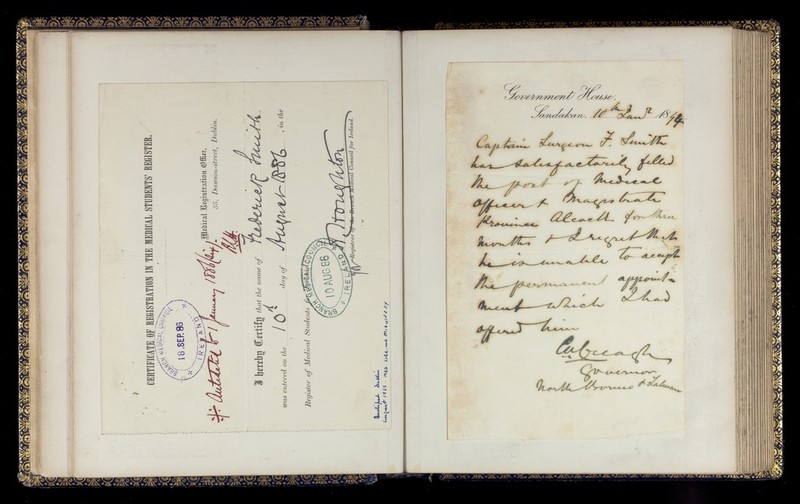 CERTIFICATE OF REGISTRATION IN THE MEDICAL STUDENTS' REGISTER.
BRANCH MEDICAL COUNCIL
18.SEP.86
IRELAND
Medical Registration Office,
35, Dawson-street, Dublin.
Antedated to 1 January 1886
I hereby Certify that the name of Frederick Smith
was entered on the 10th day of August 1886, in the
Register of Medical Students
BRANCH MEDICAL COUNCIL
10 AUG 86
IRELAND
Houghton
Registrar of the Branch Medical Council for Ireland.
Government House,
Sandakan, 10th Jany 1894
Captain Surgeon F. Smith
has satisfactorily filled
the post of Medical
Officer & Magistrate
Province Alcock for three
months & I regret that
he is unable to accept
the permanent appoint-
ment which I had
offered him
Governor
North Borneo & Labuan